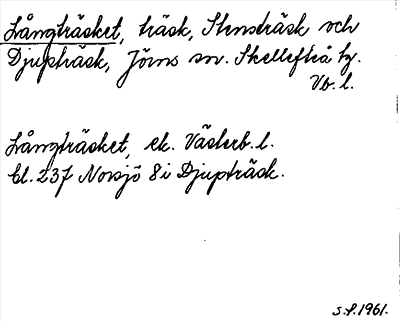 Långträsket, träsk, Stensträsk och
Djupträsk, Jörns sn. Skellefteå tg.
Vb. l.
Långträsket, ek. Västerb. l.
bl. 237 Norsjö 8 i Djupträsk.
S.S. 1961.